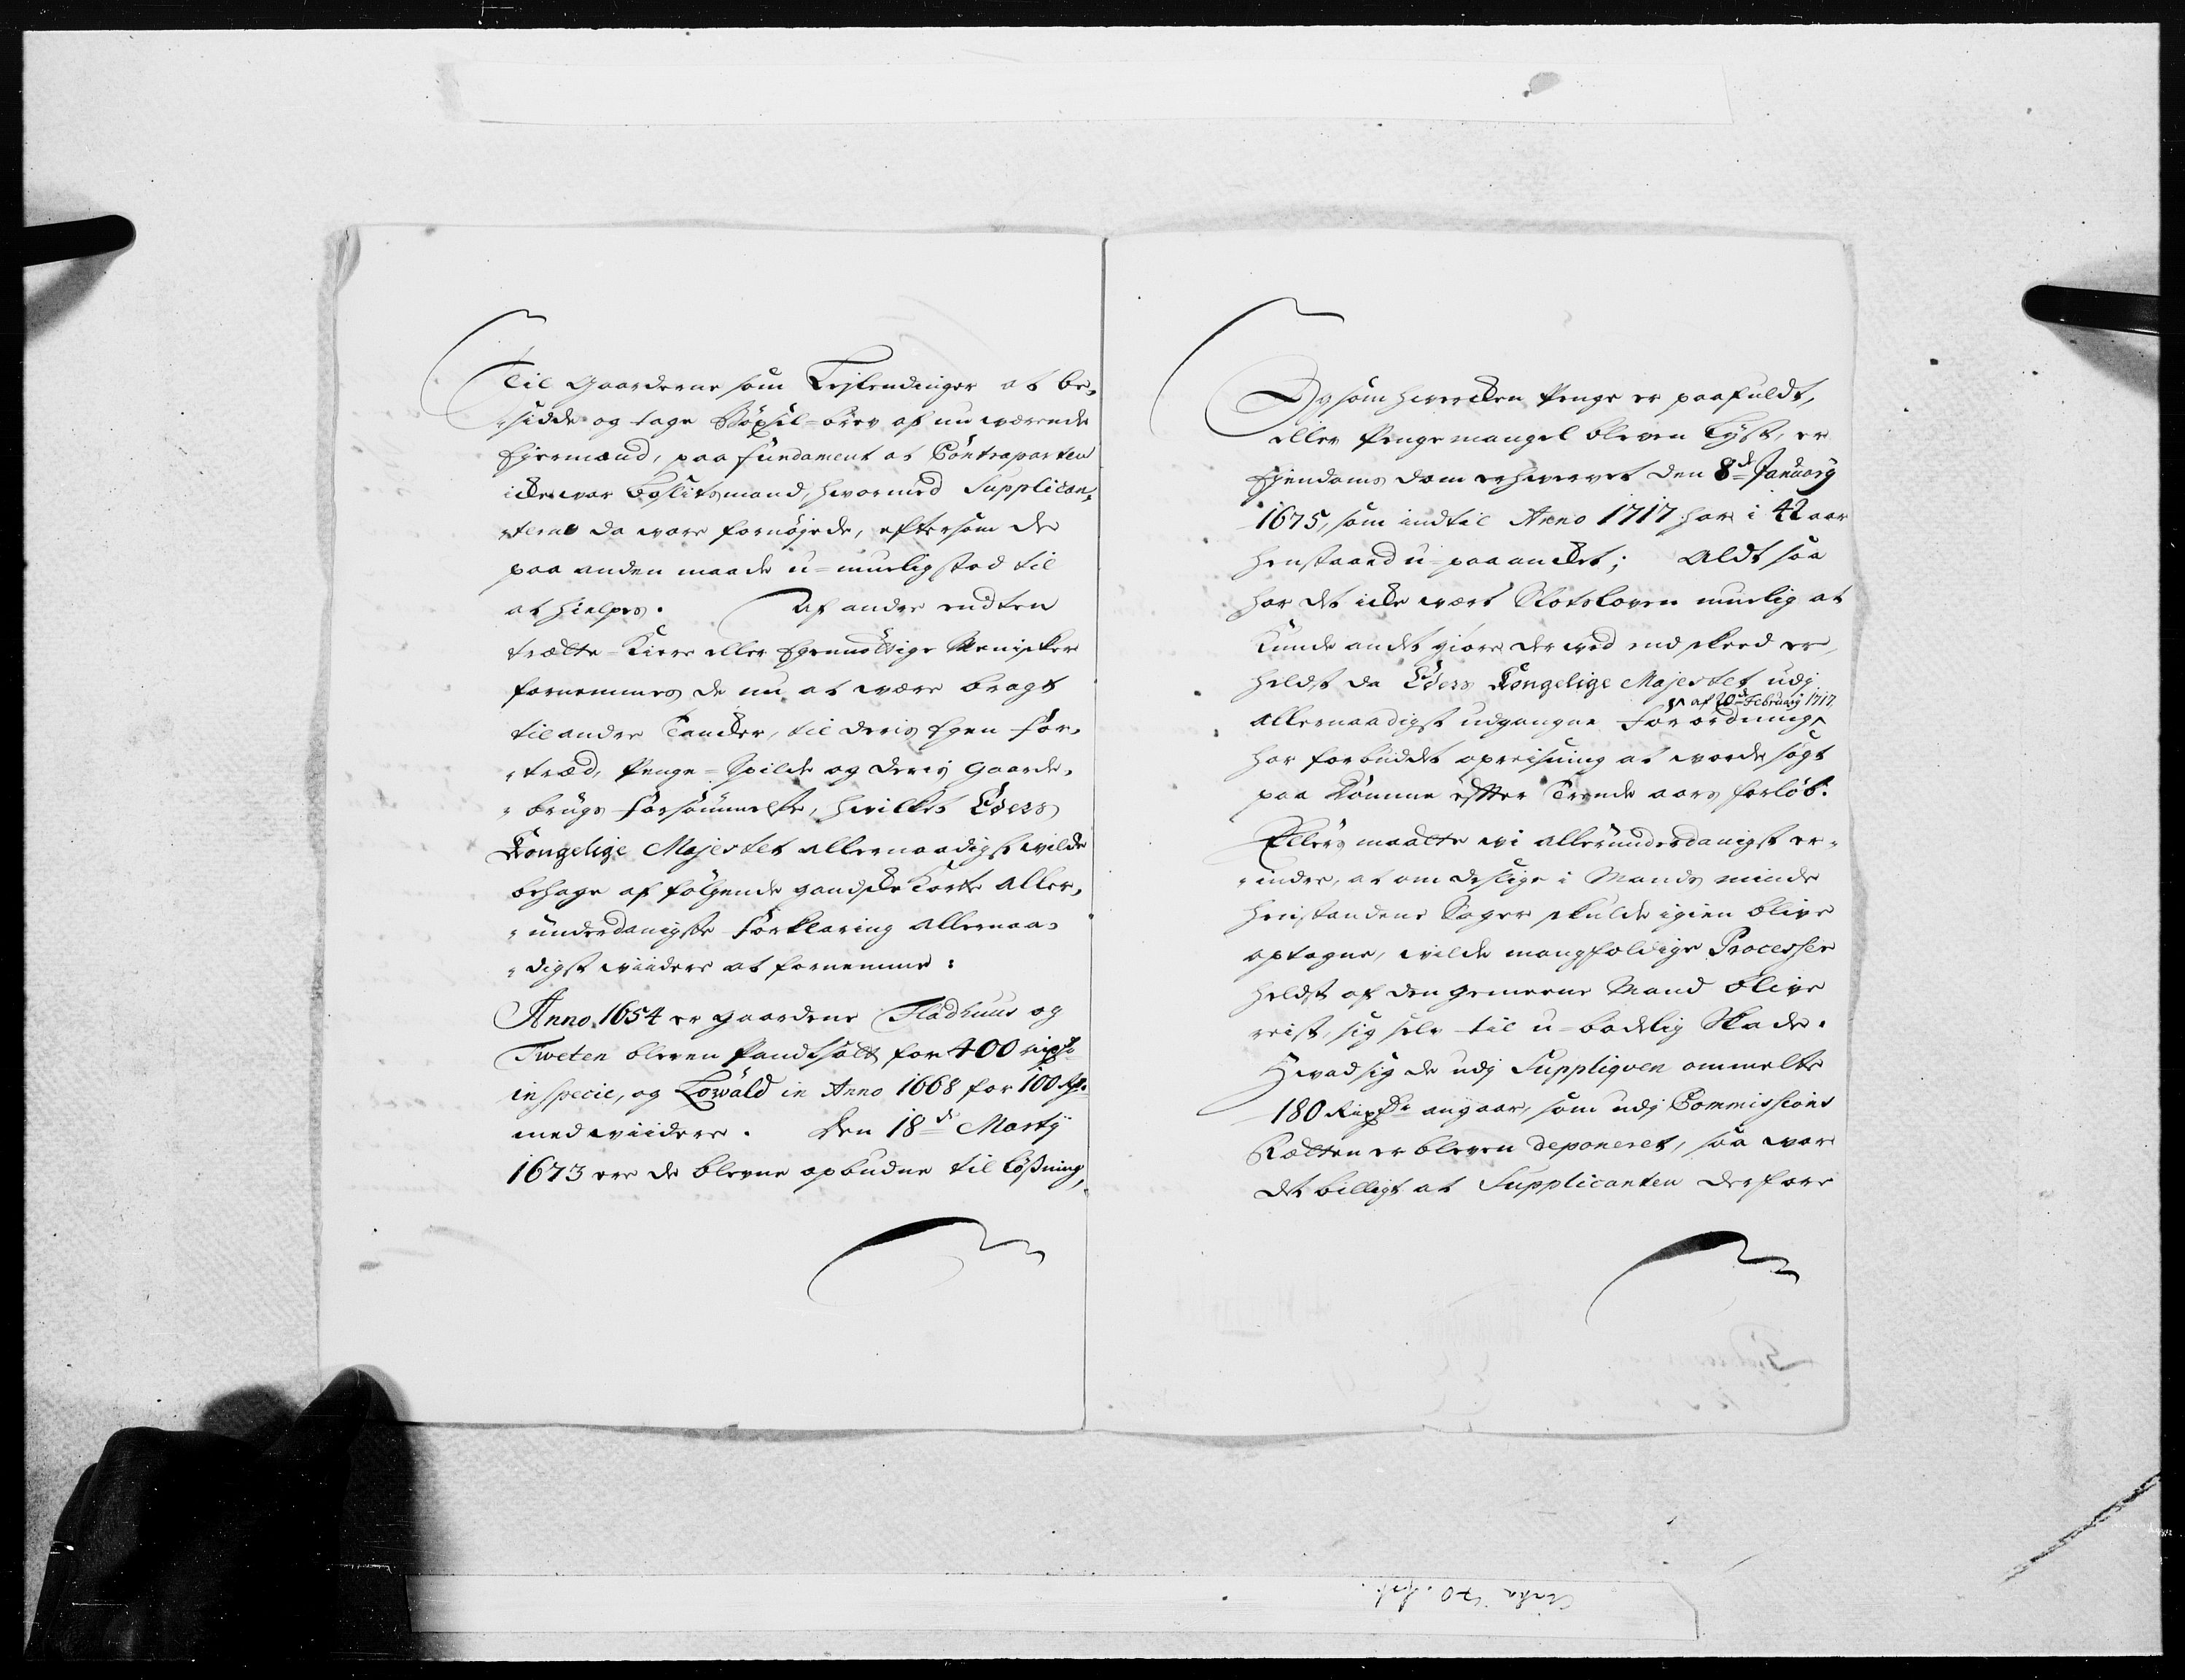 Til Gaarderne som Lejlendinger at be-
"sidde og tage Böxsil-brev af nu værende
Ejermænd, paa fundament at Contraparten
icke war Boslitsmand, hvormed Supplican-
"terne da vare fornøjede, eftersom de
paa anden maade u-muelig stod til
at hielpes. Af andre endten
trætte-kiere eller Egennöttige Menisker
fornemmes de nu at være bragt
til andre Tancker, til deris Egen for-
"træd, Penge-Spilde og deris Gaarde-
"brugs forsömmelse, hvilket Eders
Kongelige Majestet allernaadigst wilde
behage af fölgende gandske korte aller-
"underdanigste forklaring allernaa-
"digst wiidere at fornemme:
Anno 1654 er gaardene Fladhuus og
Tweten bleven Pandtsatt for 400 rixdr
in specie, og Lowald in Anno 1668 for 100 Rdr.
med wiidere. Den 18de Martij
1673 ere de blevne opbudne til lößning,
Dysom hvercken Penge er paafuldt,
eller Penge mangel bleven lyst, er
Ejendoms dom erhvervet den 8de Januarij
1675, som indtil Anno 1717 har i 42 aar
henstaaed u-paaancket; Altsaa
har det icke vært Slotsloven muelig at
kunde andet giöre derved end skeed er,
heldst da Eders Kongelige Majestet udj
allernaadigst udgangne forordning
af 20de Februarij 1717
har forbüdet opreisning at worde sögt
paa Domme efter Trende aars forlöb.
Ellers maatte wi allerunderdanigst er-
"indre, at om deslige i Mands minde
henstandene Sager skulde igien blive
optagne, wilde mangfoldige Processer
heldst af den gemeene Mand blive
reist, sig selv til u-bodelig Skade.
Hvad sig de udj Suppliqven ommelte
180 Rixdr angaar, som udj Commissions
Rætten er bleven deponeret, saa war
det billigt at Supplicanten derfore